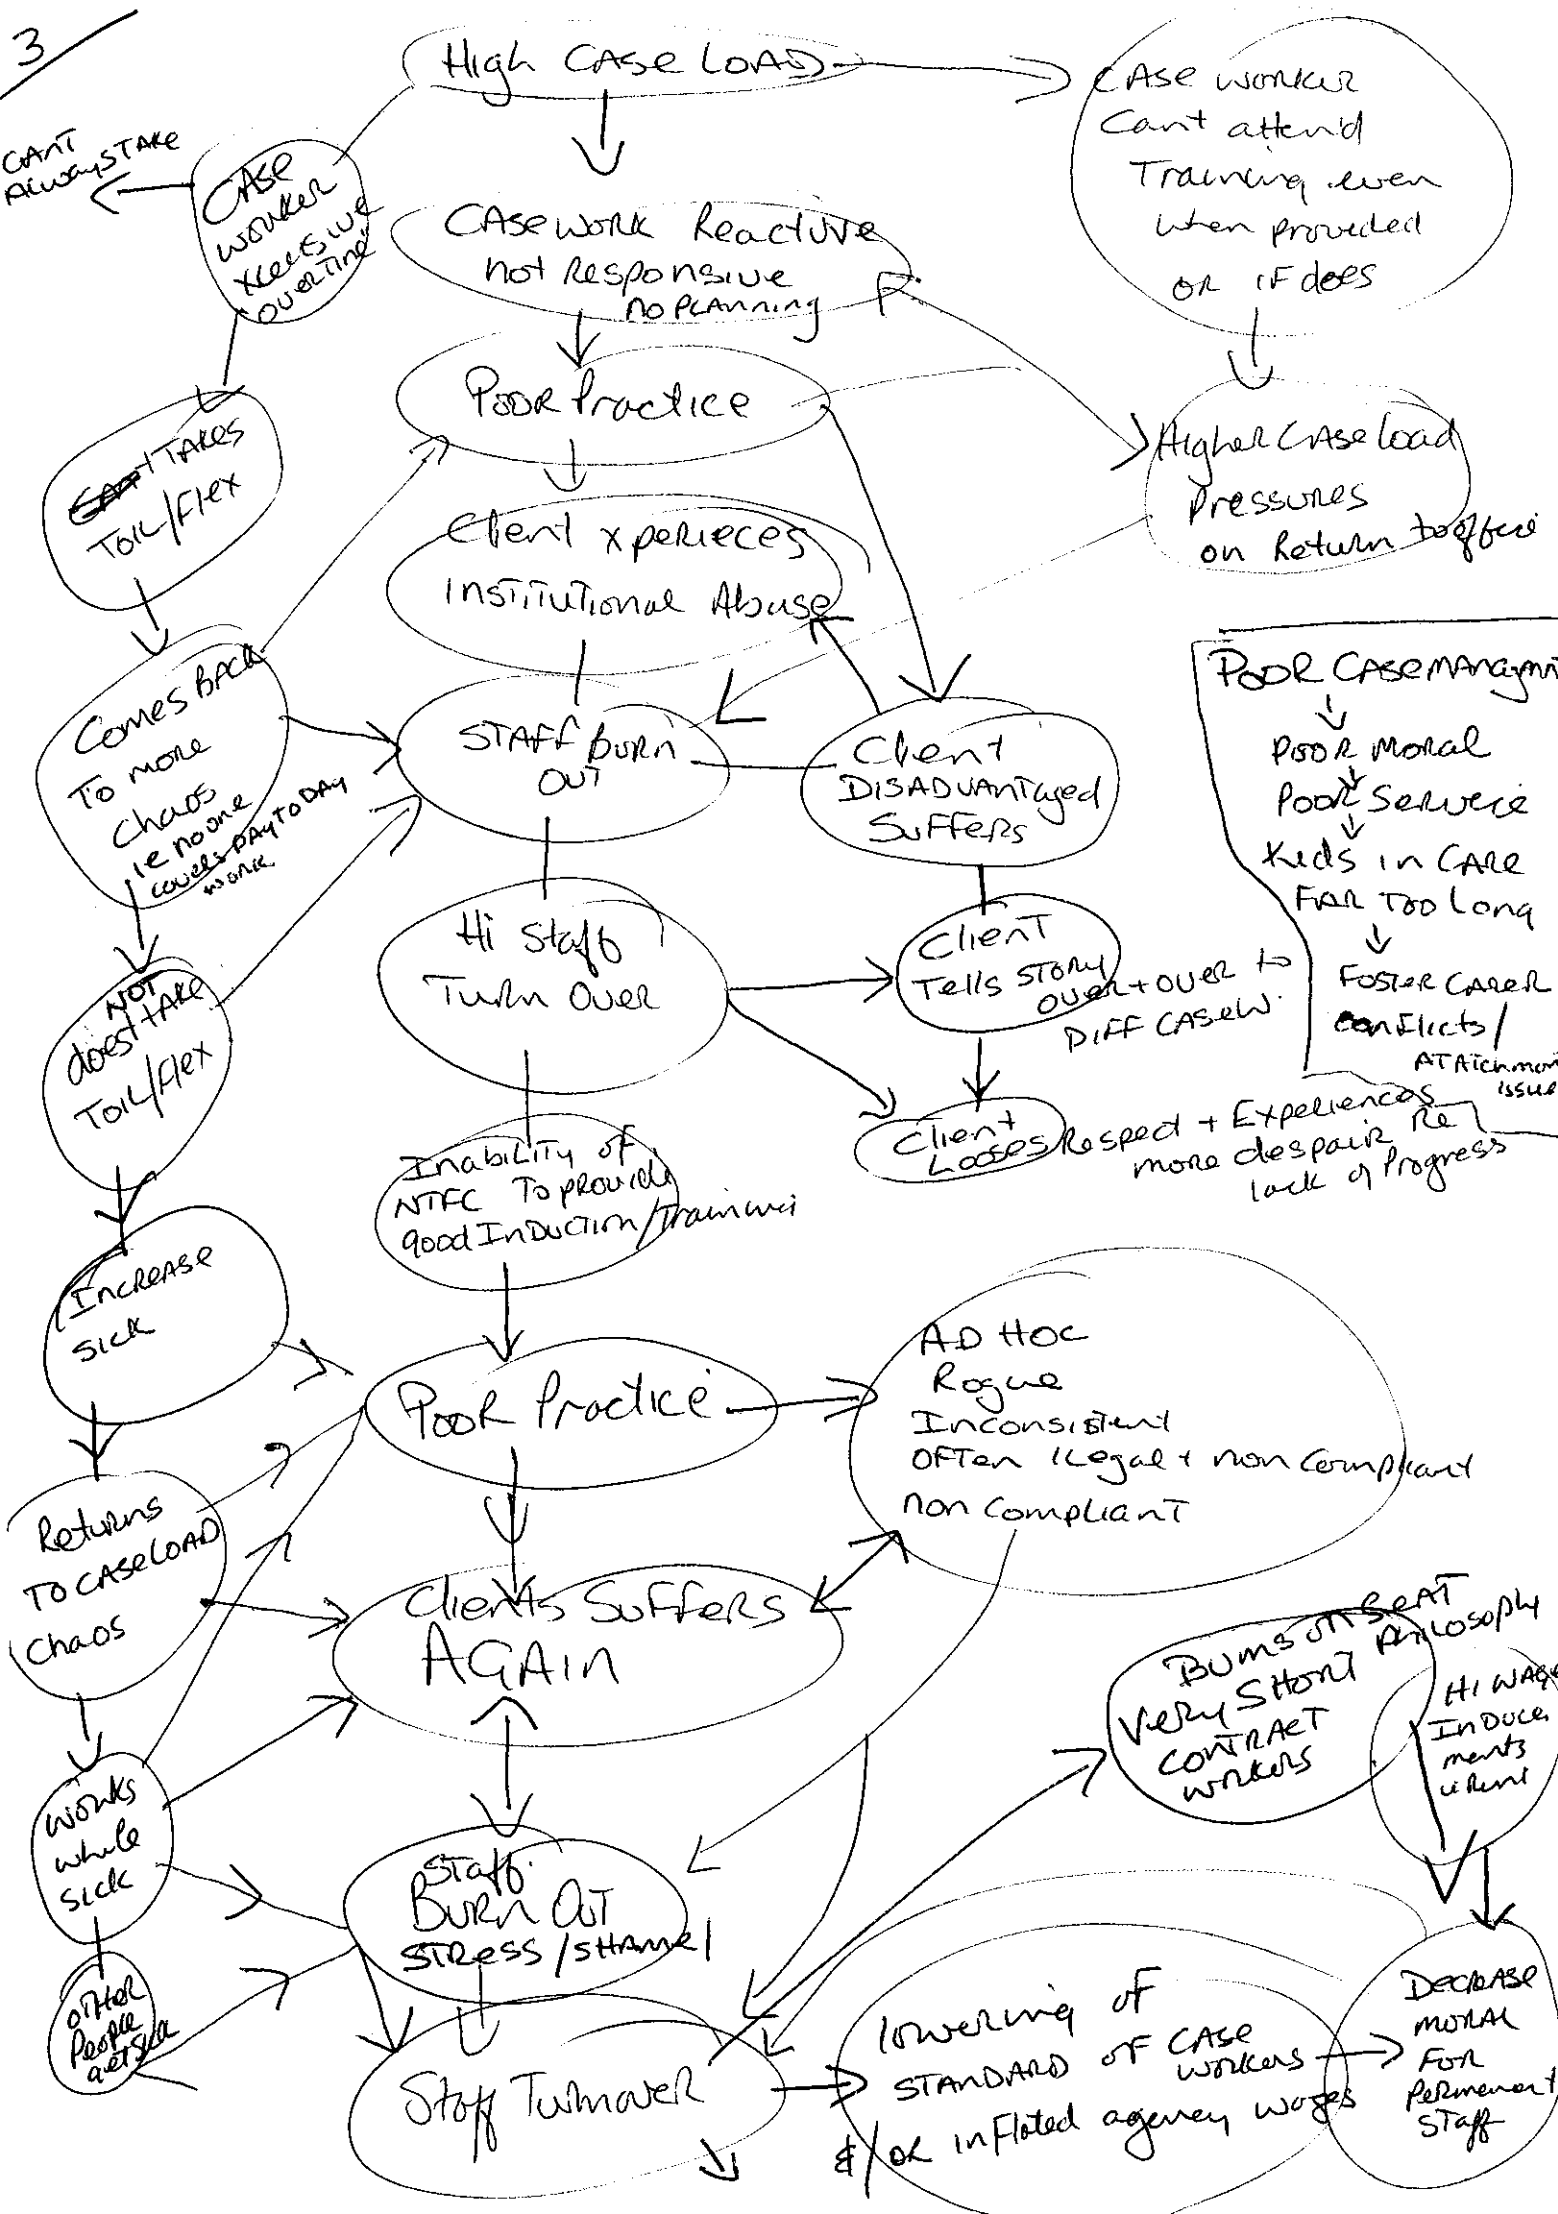 3
High CASE LOAD
CASE WORKER
Can't attend
Training even
when provided
OR IF does
CANT
AlwaysTAKE
CASE
WORKER
xcessive
OVERTIME
CASEWORK Reactive
not Responsive
no Planning
POOR Practice
Higher CASE load
Pressures
on Return to office
TAKES
TOIL/Flex
Client xperieces
INSTITUTIONAL Abuse
Comes BACK
To more
Chaos
ie no one
covers DAY TO DAY
work
STAFF BURN
OUT
Client
DISADVANTaged
SUFFERS
POOR CASEMANAgmn
POOR MORAL
POOR Service
Kids in CARE
FAR TOO Long
FOSTER CARER
Conflicts/
ATAtchmen
issue
Hi Staff
Turn Over
Client
Tells STORY
over + over to
DIFF CASEW.
NOT
does TAKE
TOIL/Flex
Client
Looses Respect + Experiences
more despair Re
lack of Progress
Inability of
NTFC To provide
good InDuction/Training
INCREASE
SICK
POOR Practice
AD HOC
Rogue
Inconsistent
OFTen ILegal + non Compliant
non Compliant
Returns
TO CASELOAD
Chaos
Clients SUFFERS
AGAIN
BUMS ON SEAT
PHILOSOPHY
Very SHORT
CONTRACT
WORKERS
HI WAGE
InDuce
ments
ie Rent
Works
while
sick
Staff
BURN OUT
STRESS/SHAME/
OTHER
People
get Sick
Staff Turnover
lowering of
STANDARD of CASE
workers
&/or inflated agency wages
DECREASE
MORAL
FOR
Permenent
Staff